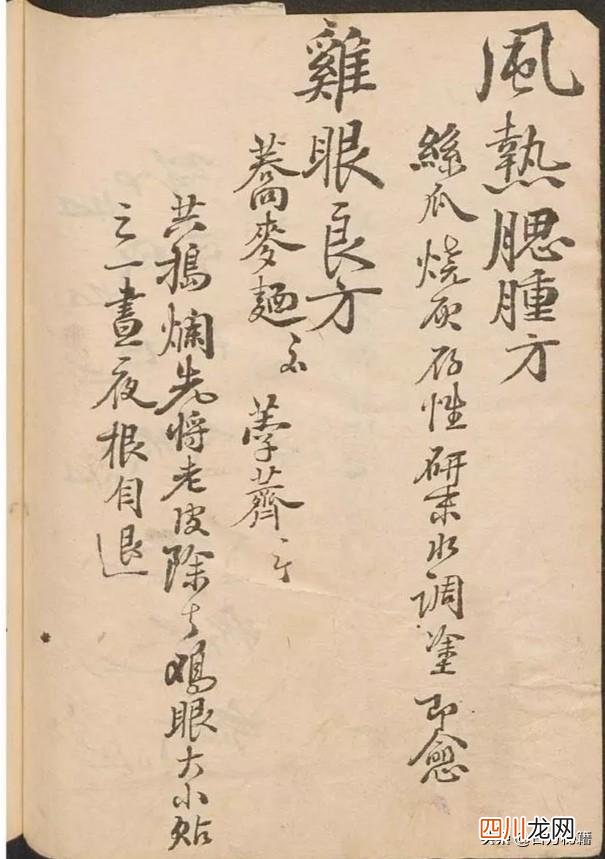 風熱腮腫方
絲瓜燒灰存性研末水調塗即愈
雞眼良方
蕎麥麵 荸薺
共搗爛先將老皮除去鸡眼大小貼
之一晝夜根自退
四川龙网